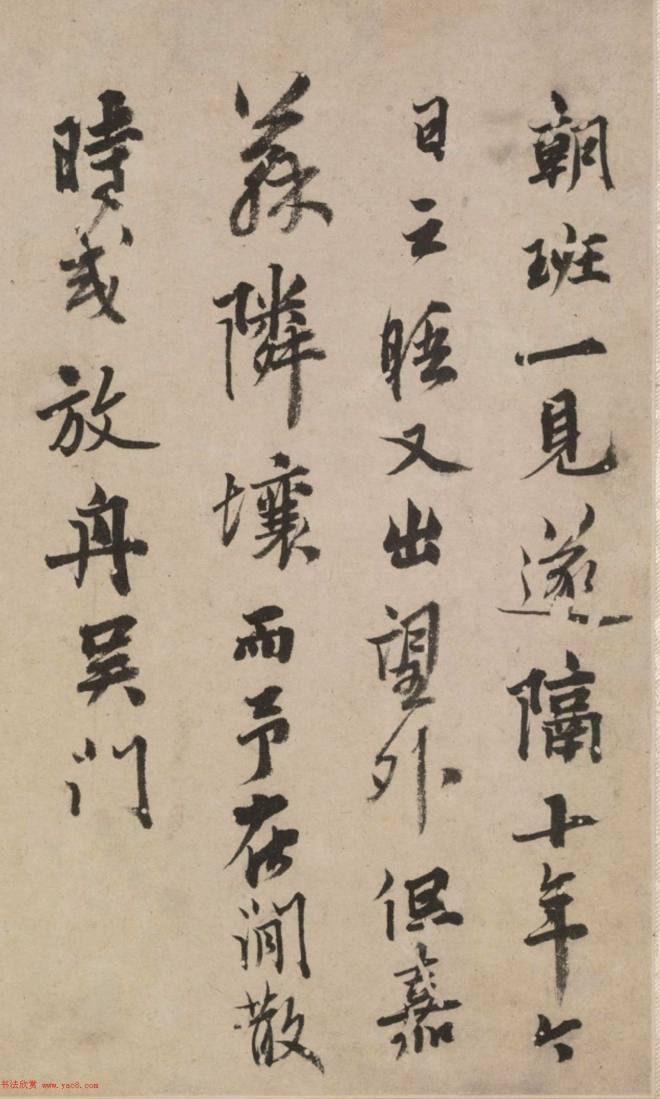 朝班一見遂隔十年今
日之晤又出望外但嘉
蘇隣壤而予在澗散
時或放舟吳門
书法欣赏 www.yac8.com